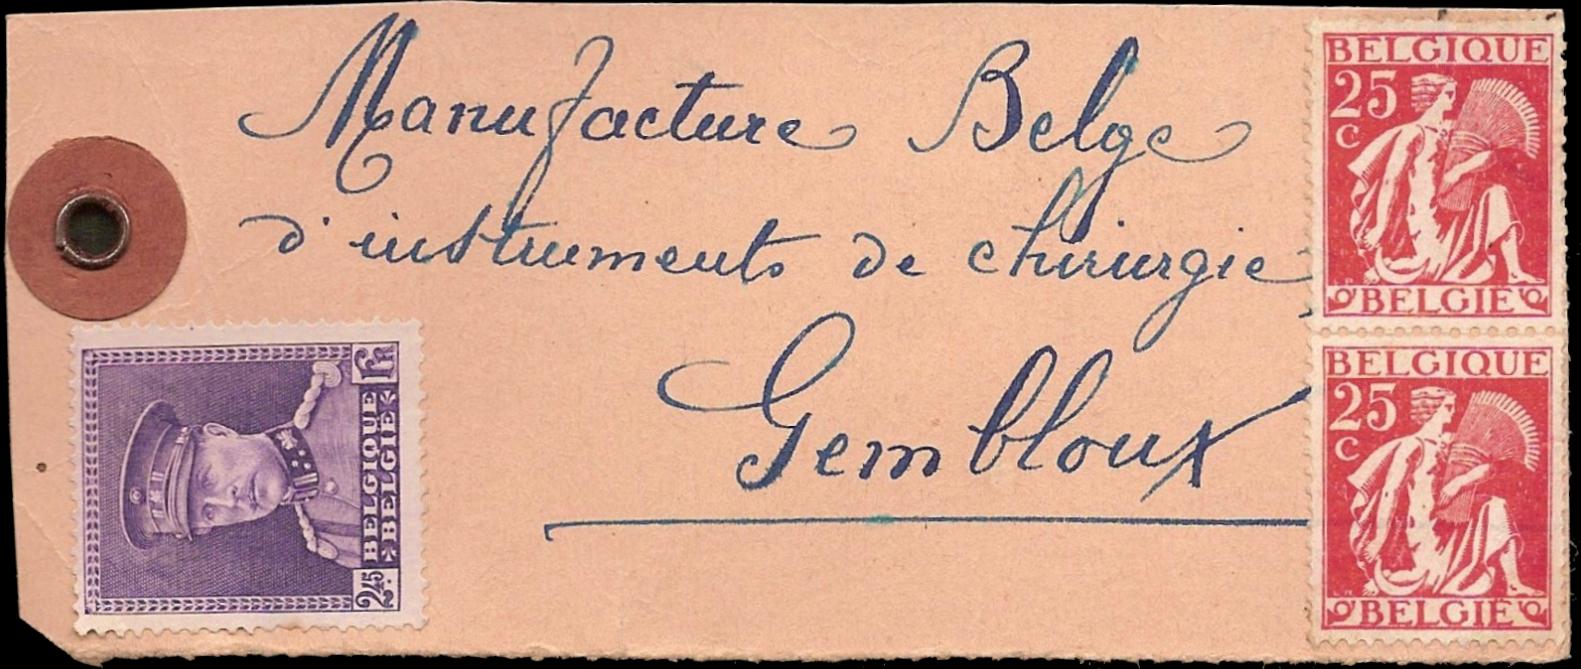 Manufacture Belge
d'instruments de chirurgie
Gembloux
BELGIQUE
25
c
BELGIE
BELGIQUE
25
c
BELGIE
2.45 BELGIQUE Fr
BELGIE